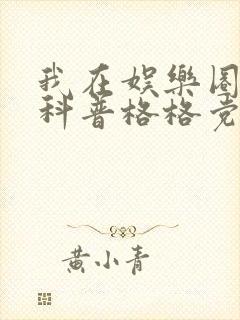 我在娱樂圈
科普格格党
黄小青